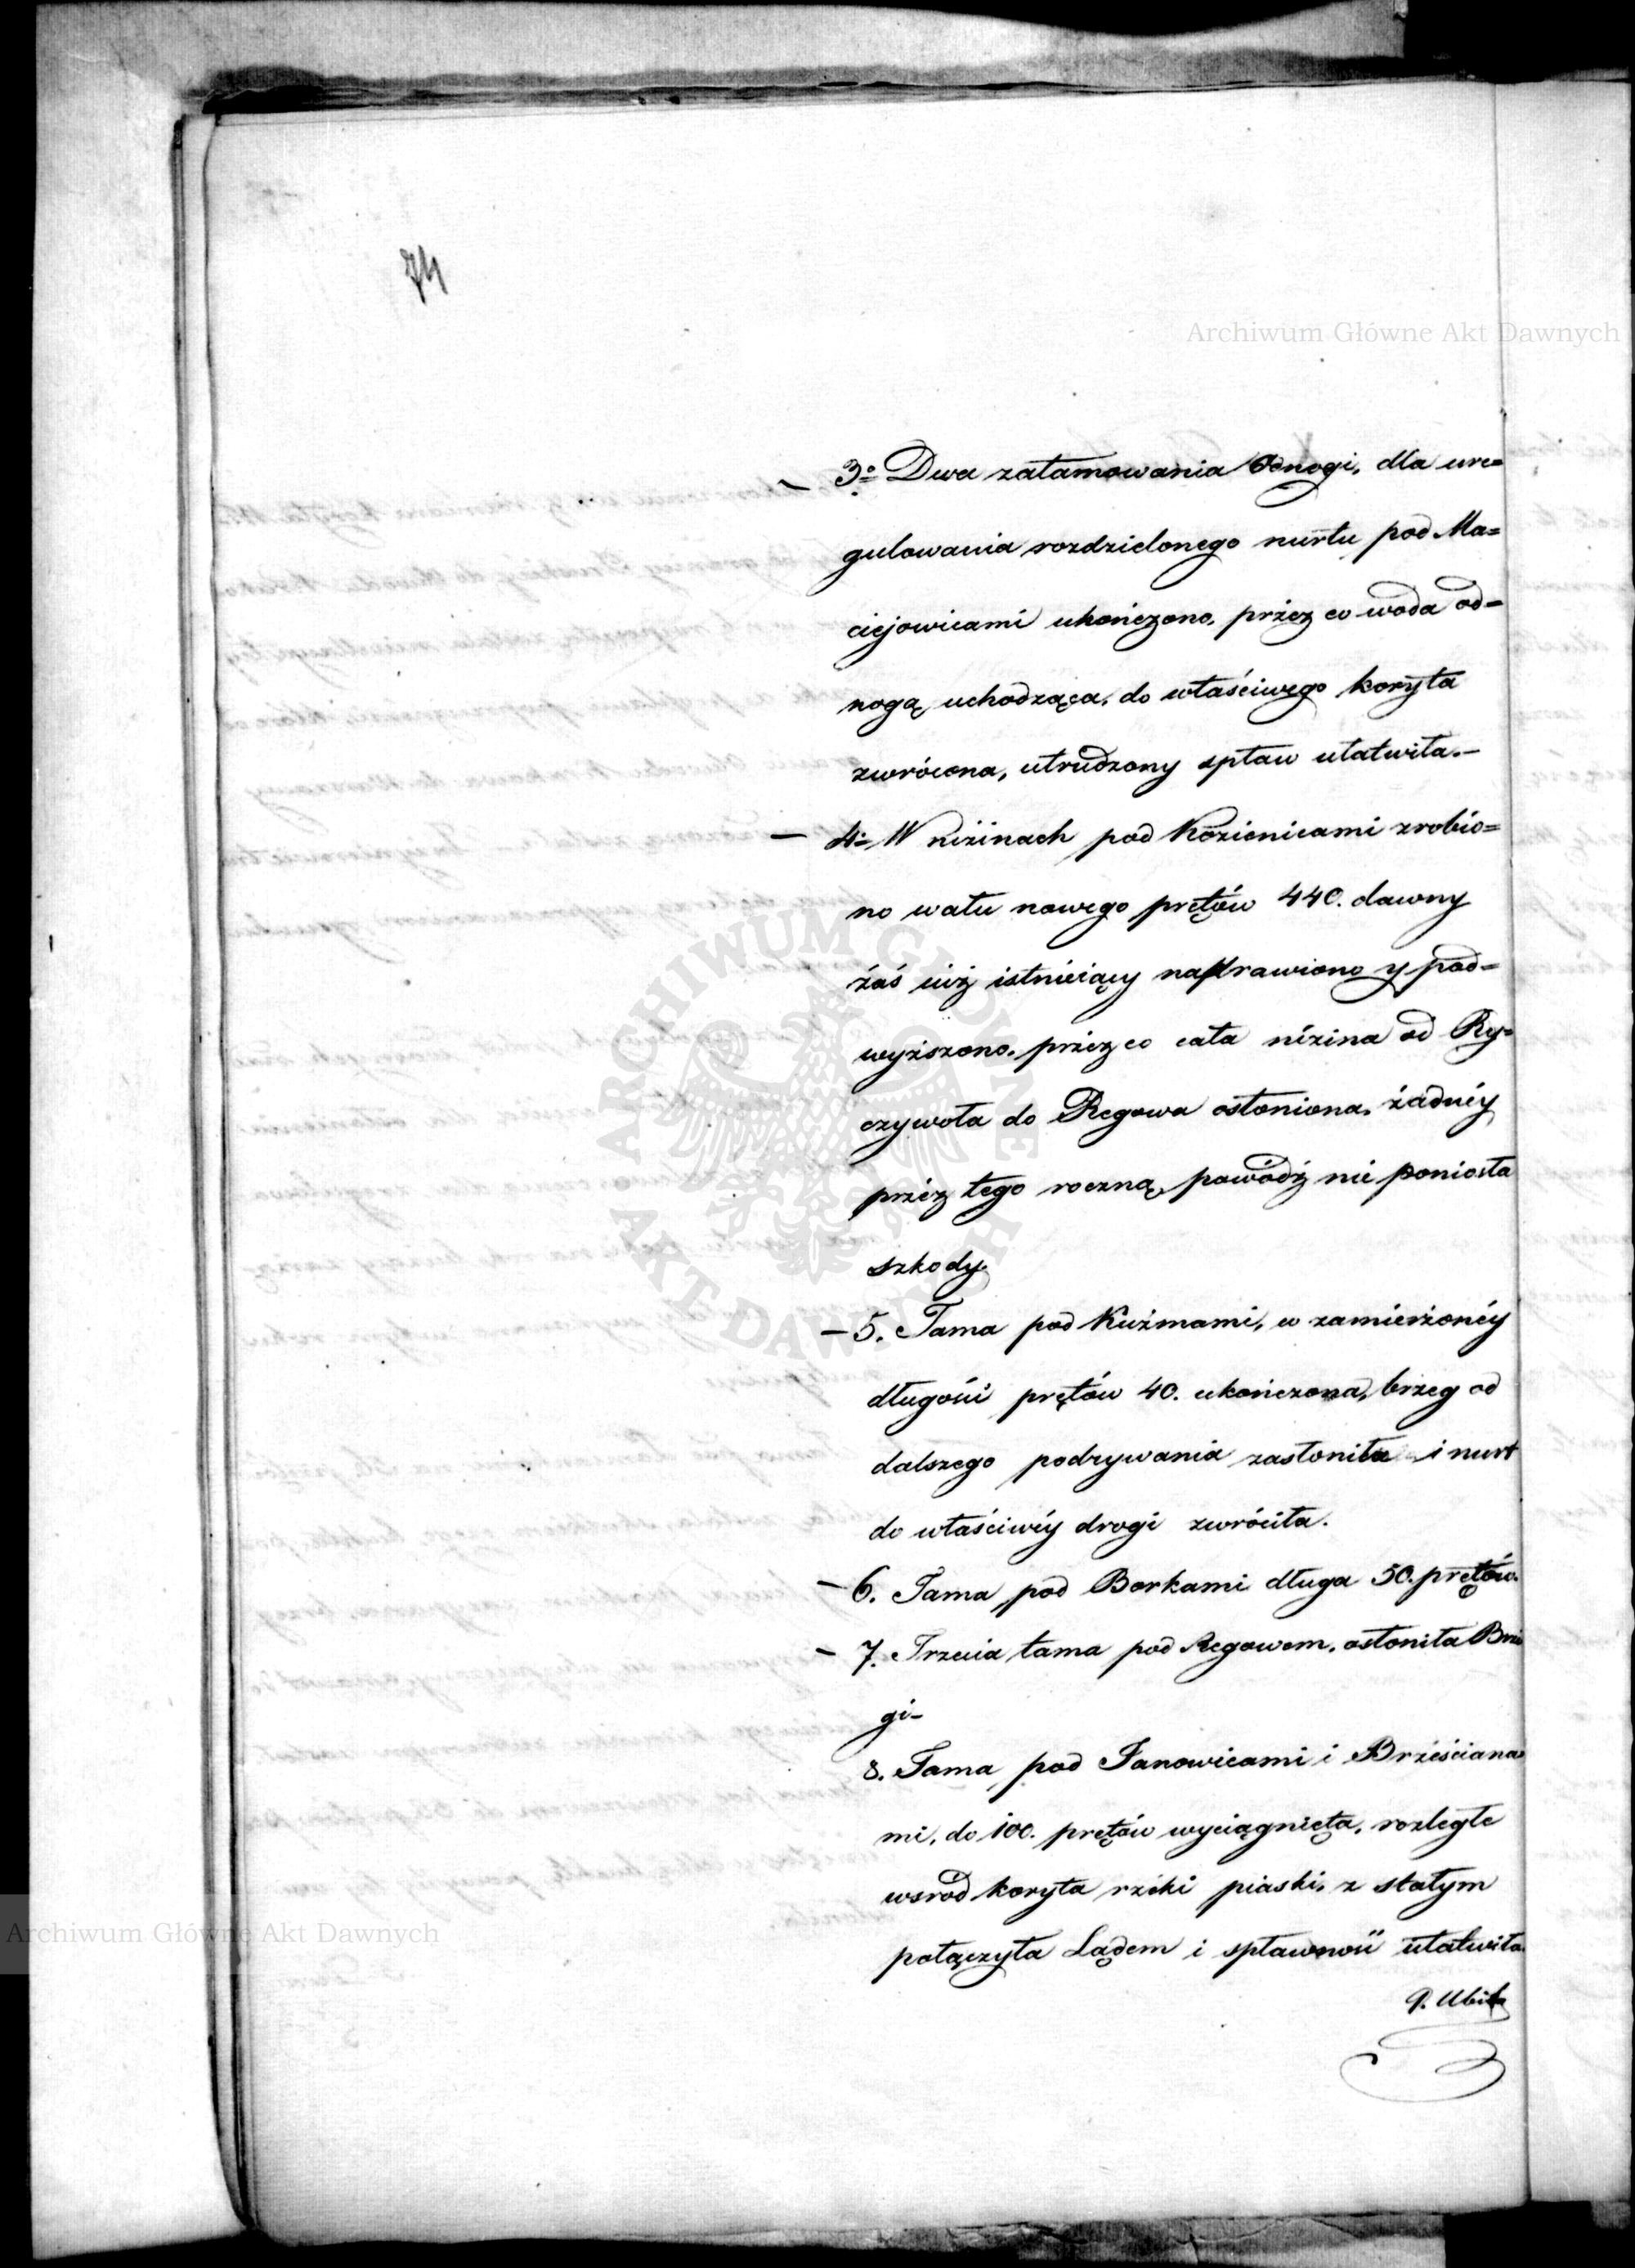 74
Archiwum Główne Akt Dawnych
— 3o= Dwa zatamowania Odnogi, dla ure=
gulowania rozdzielonego nurtu pod Ma=
ciejowicami ukończono, przez co woda od=
nogą uchodząca, do właściwego koryta
zwrócona, utrudzony spław ułatwiła.—
— 4= W niżinach pod Kozienicami zrobio=
no wału nowego prętów 440. dawny
żaś iuż istnieiący naprawiono y pod=
wyższono, przez co cała nizina od Ry=
czywoła do Regowa osłoniona, żadnéy
przez tego roczną powódź nie poniosła
szkody.
— 5. Tama pod Kuźmami, w zamierżonéy
długości prętów 40. ukończona, brzeg od
dalszego podrywania zasłoniła i nurt
do właściwéy drogi zwróciła.
— 6. Tama pod Borkami długa 50. prętów.
— 7. Trzecia tama pod Regowem, osłoniła Brze
gi—
8. Tama pod Janowicami i Brześciana=
mi, do 100. prętów wyciągnięta, rozległe
wsród koryta rzéki piaski, z stałym
połączyła Lądem i spławność ułatwiła.
ARCHIWUM GŁÓWNE
AKT DAWNYCH
Archiwum Główne Akt Dawnych